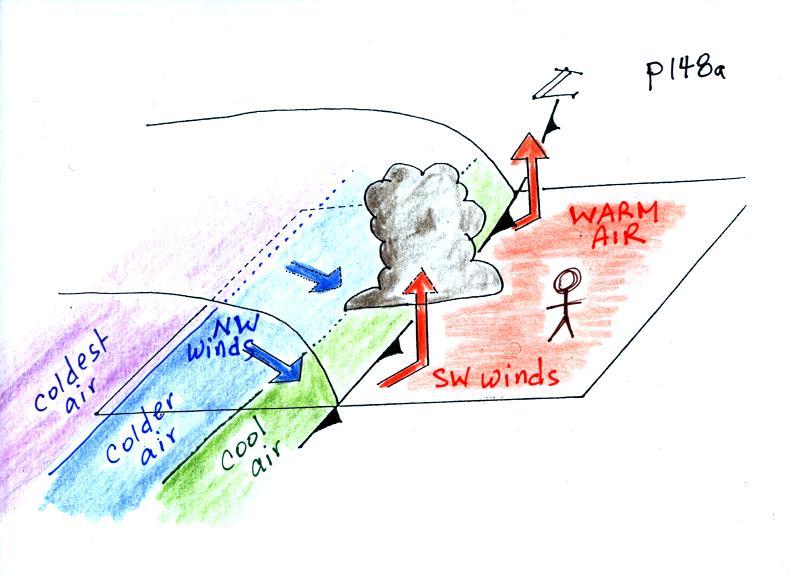 p148a
WARM
AIR
NW
winds
SW winds
coldest
air
colder
air
cool
air